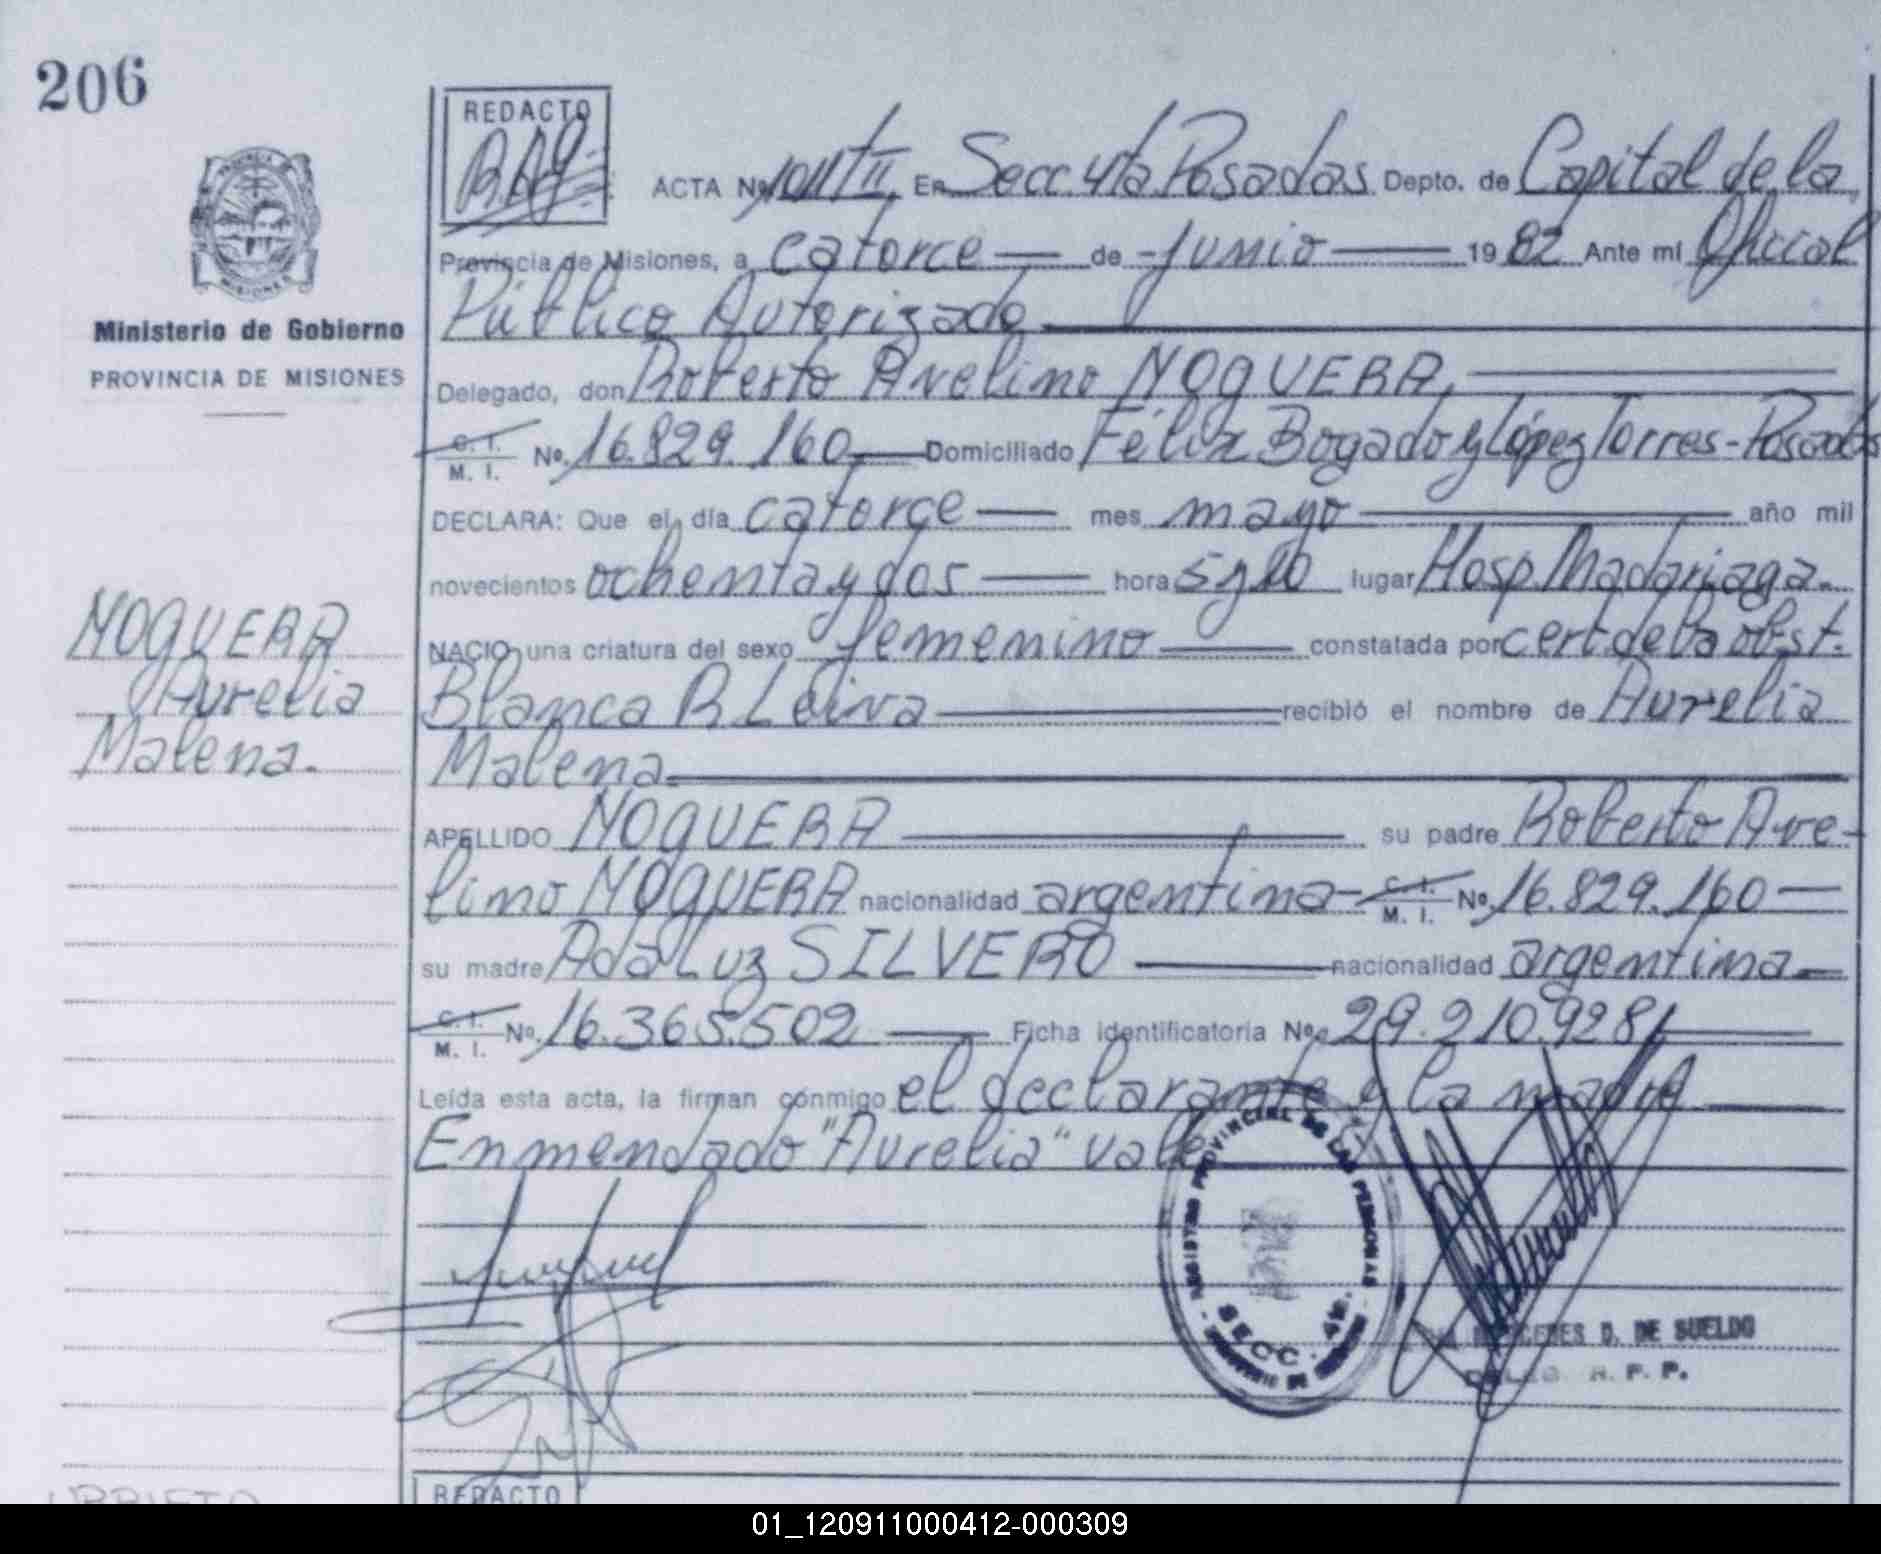 206
REDACTO
ACTA Nº 1011 TII En Secc 4ta Posadas Depto. de Capital de la
Provincia de Misiones, a catorce de Junio 1982 Ante mi Oficial
Público Autorizado
Ministerio de Gobierno
PROVINCIA DE MISIONES
Delegado, don Roberto Avelino NOGUERA,
C. I. M. I. Nº. 16.829.160 Domiciliado Félix Bogado y López Torres - Posadas
DECLARA: Que el día catorce mes mayo año mil
novecientos ochenta y dos hora 5 y 20 lugar Hosp. Madariaga.
NACIO una criatura del sexo femenino constatada por cert. de la obst.
Blanca R Leiva recibió el nombre de Aurelia
Malena
NOGUERA
Aurelia
Malena.
APELLIDO NOGUERA su padre Roberto Ave-
lino NOGUERA nacionalidad argentina - C. I. M. I. Nº. 16.829.160
su madre Ada Luz SILVERO nacionalidad argentina
C. I. M. I. Nº. 16.365.502 Ficha identificatoria Nº. 29.210.928
Leída esta acta, la firman conmigo el declarante y la madre
Enmendado "Aurelia" vale
REGISTRO PROVINCIAL DE LAS PERSONAS
SECC. 4ta.
D. DE SUELDO
R. P. P.
REDACTO
01_120911000412-000309